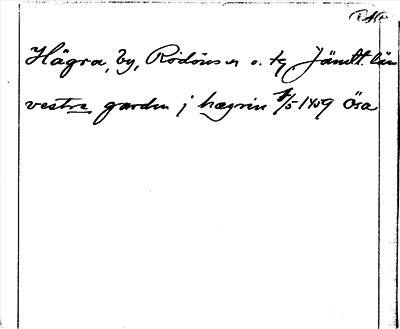 Hägra, by, Rödöns sn o. tg Jämtl. län
vestra garden j hægrin 1/5 1459 Ösa